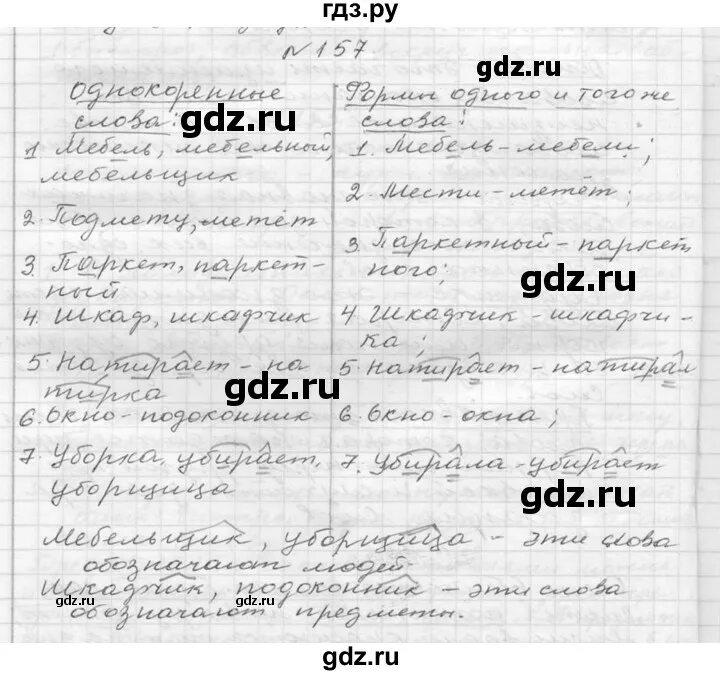 гдз.ру
№157
Однокоренные
слова:
1 Мебель, мебельный,
мебельщик
2. Подмету, метёт
3. Паркет, паркет-
ный
4. Шкаф, шкафчик
5. Натирает - на
тирка
6. Окно - подоконник
7. Уборка, убирает,
уборщица
Формы одного и того же
слова:
1. Мебель - мебели;
2. Мести - метёт;
3. Паркетный - паркет
ного;
4 Шкафчик - шкафчи-
ка;
5. Натирает - натирал
6. Окно - окна;
7. Убирала - убирает
Мебельщик, уборщица - эти слова
обозначают людей.
Шкафчик, подоконник - эти слова
обозначают предметы.
gdz.ru
gdz.ru
gdz.ru
gdz.ru
gdz.ru
gdz.ru
gdz.ru
gdz.ru